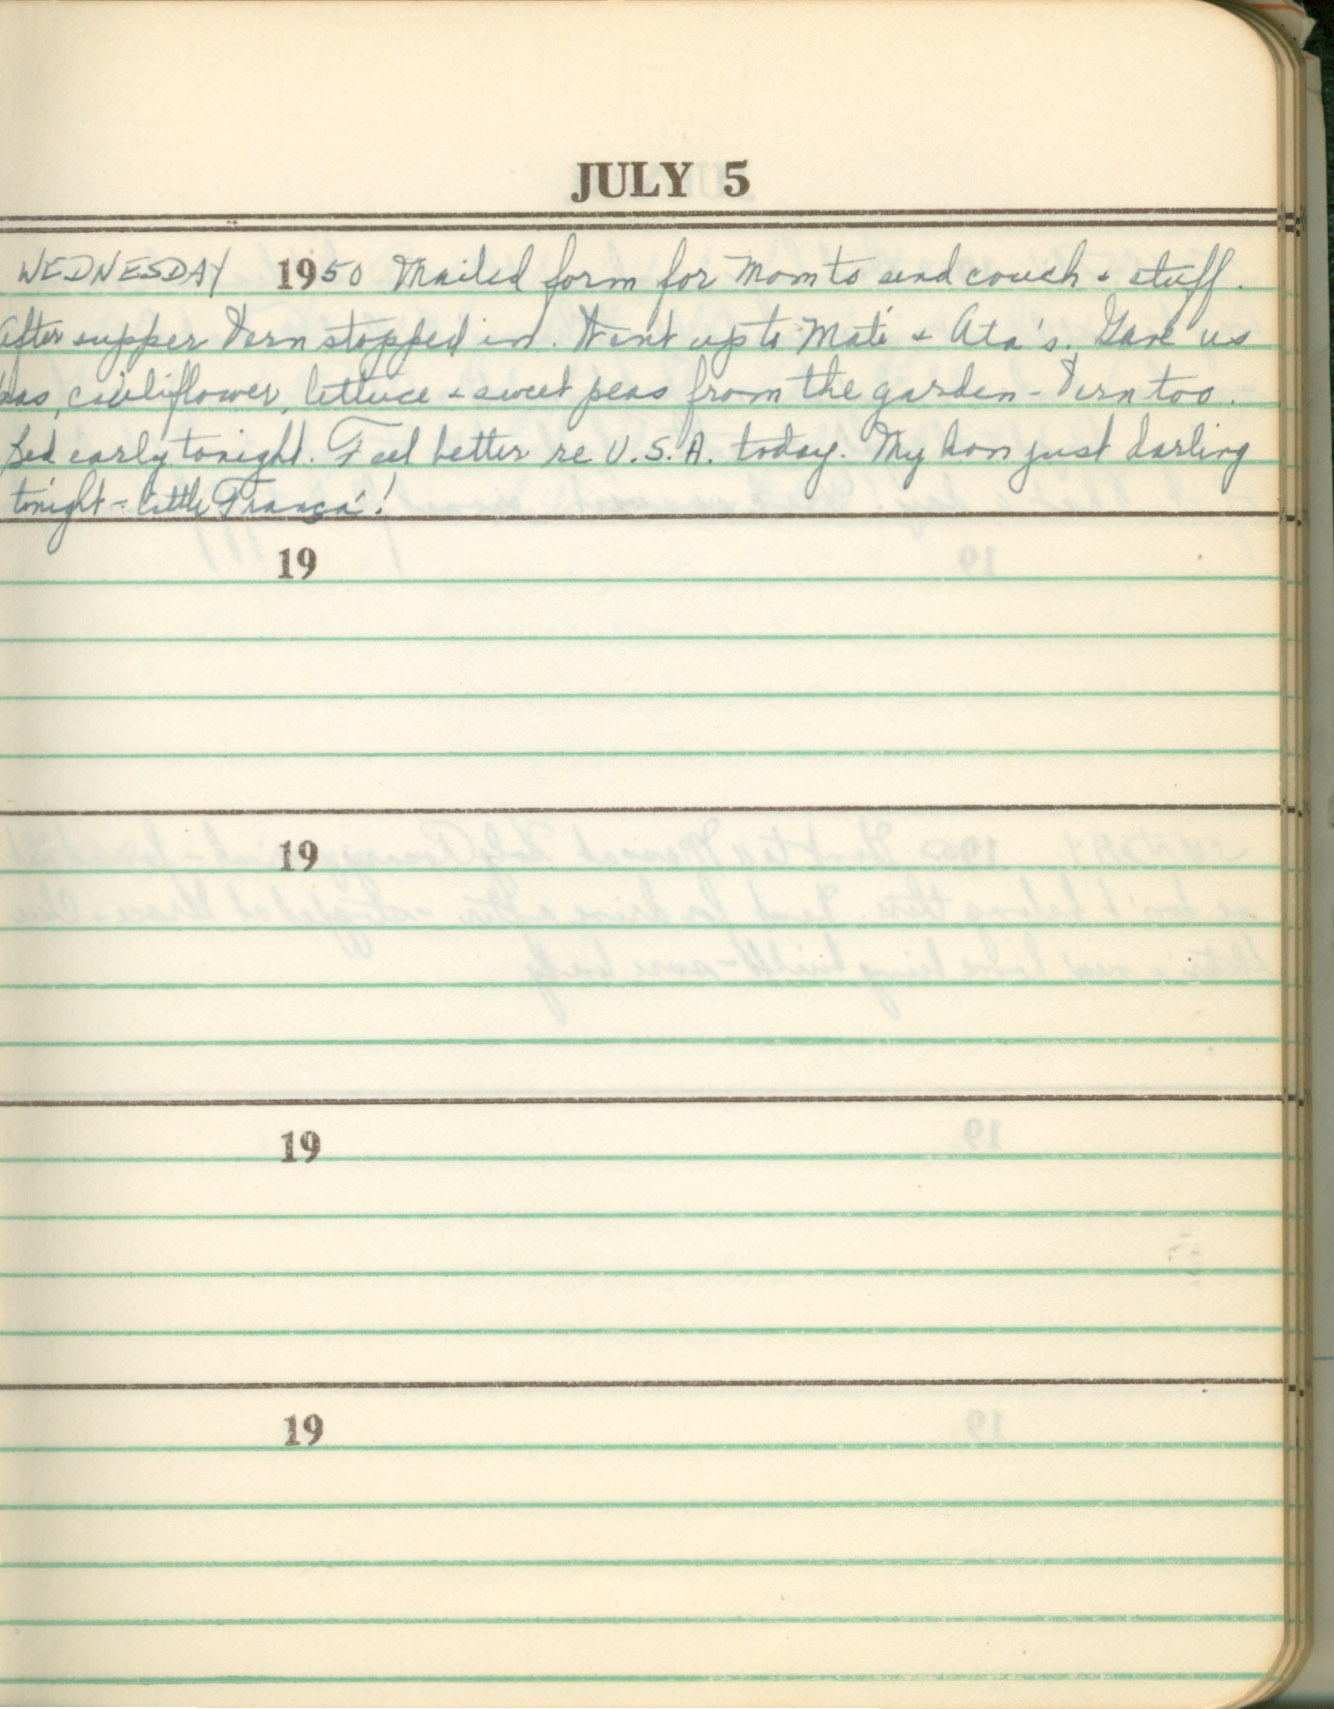 JULY 5
WEDNESDAY 1950 Mailed form for Mom to send couch + stuff.
After supper Vern stopped in. Went up to Maté + Ata's. Gave us
cauliflower, lettuce + sweet peas from the garden - Vern too.
Bed early tonight. Feel better re U.S.A. today. My hon just darling
tonight - little Franca'!
19
19
19
19